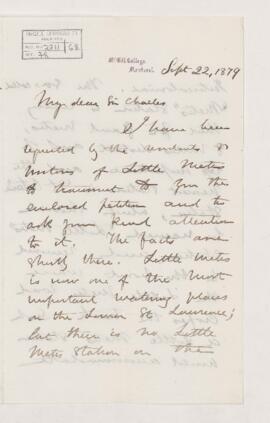 McGill College
Montreal. Sept 22, 1879
My dear Sir Charles
I have been
requested by the residents &
visitors of Little Metis
to transmit to you the
enclosed petition and to
ask your kind attention
to it. The facts are
shortly these. Little Metis
is now one of the most
important watering places
on the Lower St Lawrence;
but there is no Little
Metis Station on the